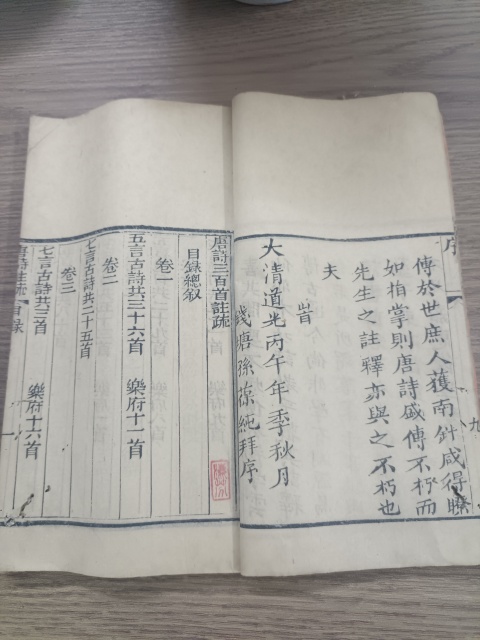 序
傳於世庶人獲南針咸得瞭
如指掌則唐詩盛傳不朽而
先生之註釋亦與之不朽也
夫
旹
大清道光丙午年季秋月
錢唐孫葆純拜序
唐詩三百首註疏
目錄總叙
卷一
五言古詩共三十六首 樂府十一首
卷二
七言古詩共二十五首
卷三
七言古詩共三首 樂府十六首
唐詩註疏 目錄 一